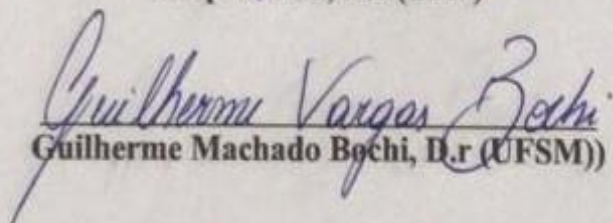 Guilherme Vargas Bochi
Guilherme Machado Bochi, D.r (UFSM))